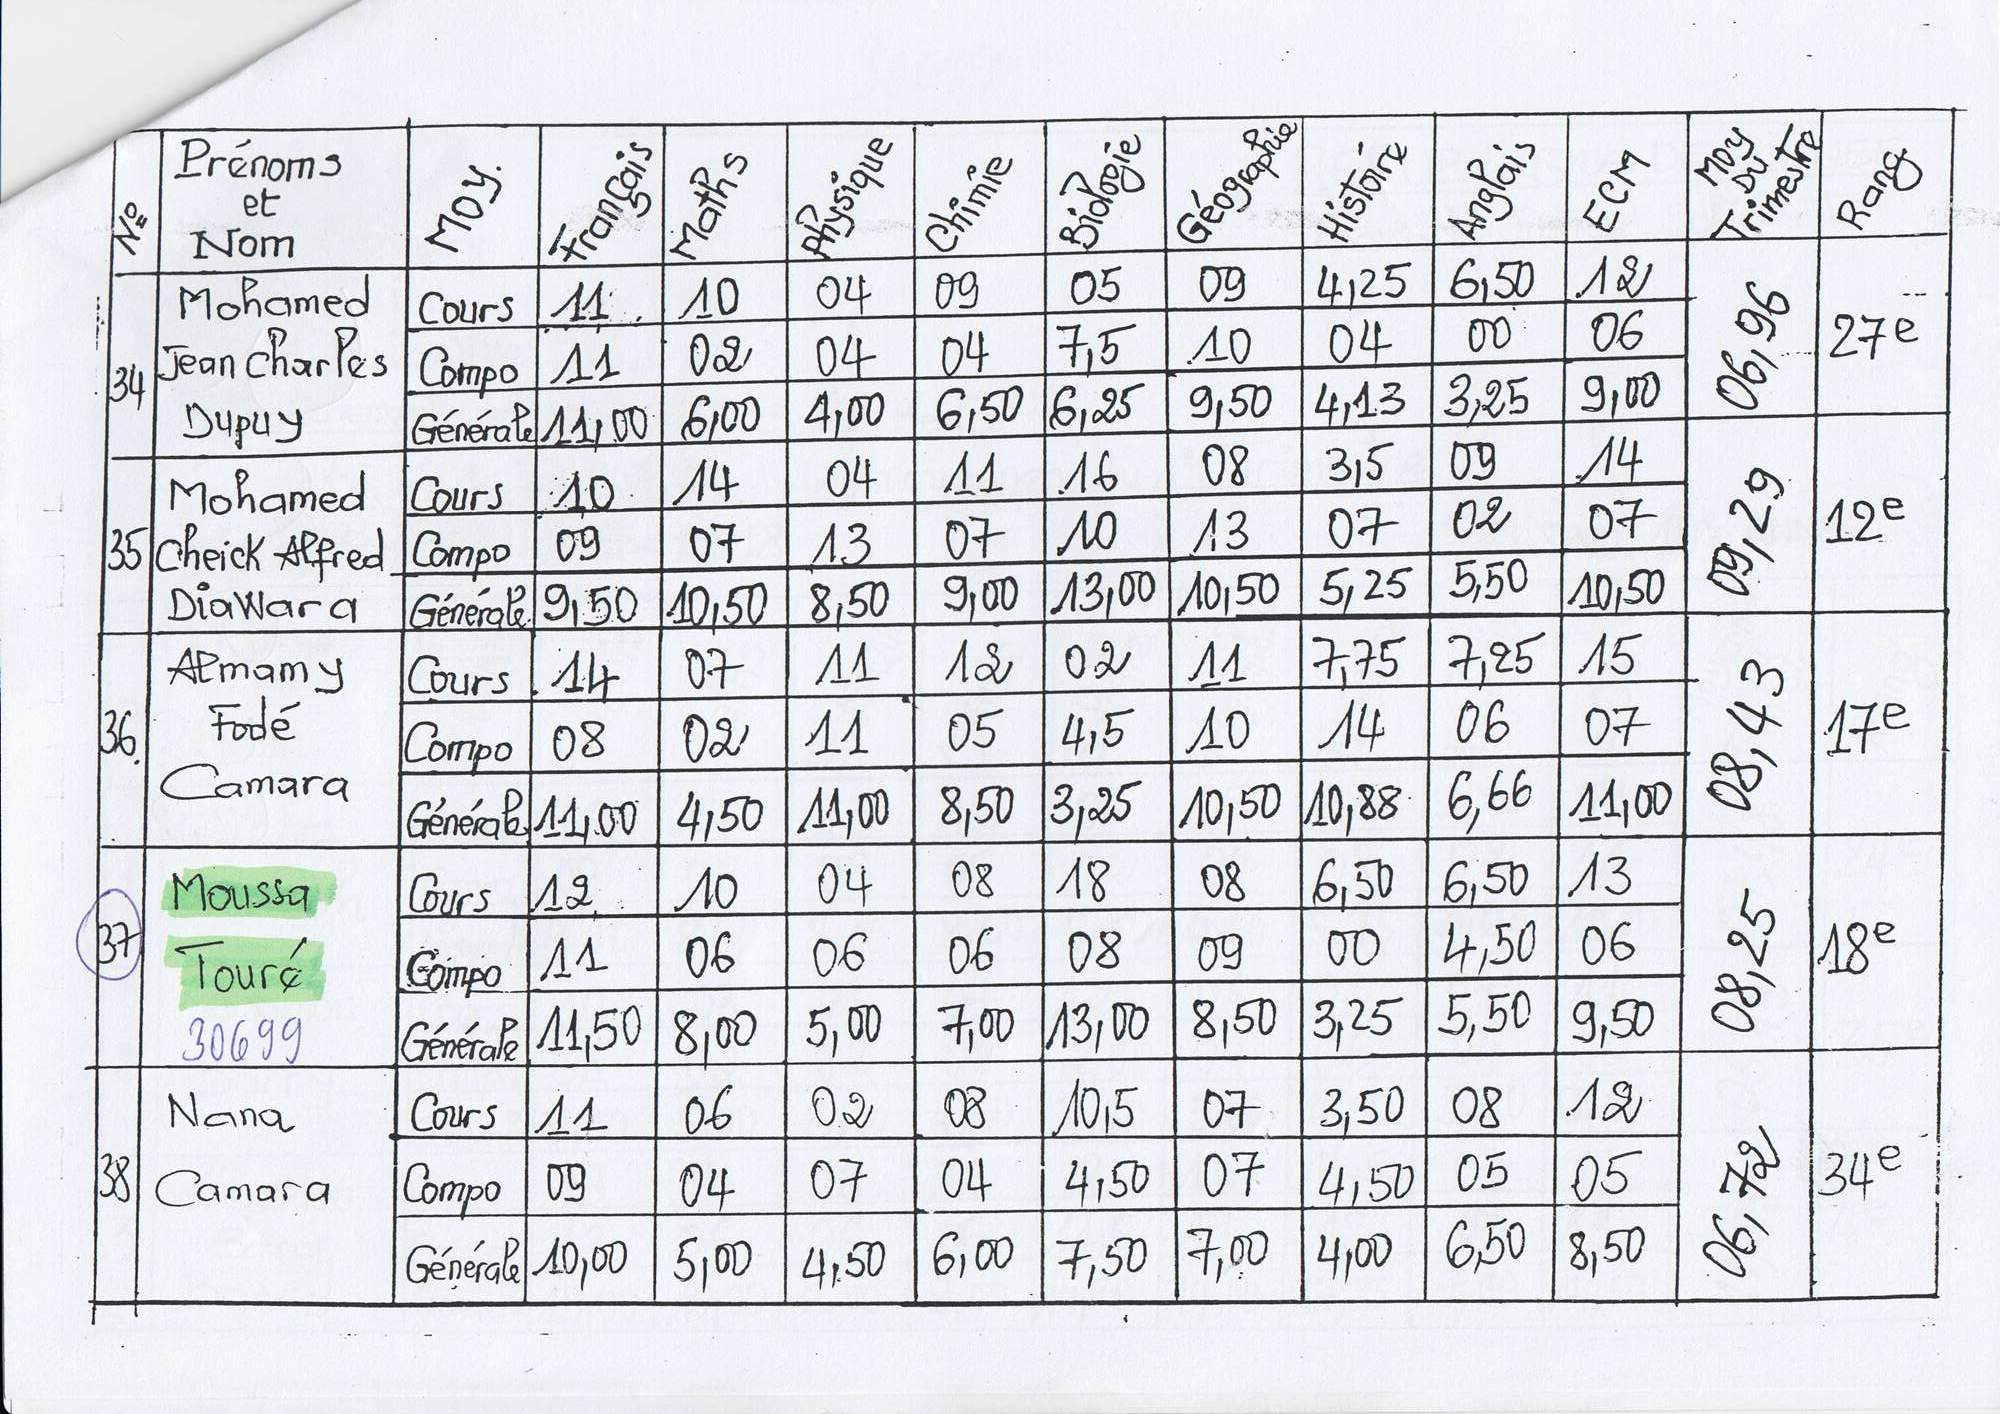 No Prénoms et Nom Moy. Français Maths Physique Chimie Biologie Géographie Histoire Anglais ECM Moy Du Trimestre Rang
34 Mohamed Jean Charles Dupuy 06,96 27e
Cours 11 10 04 09 05 09 4,25 6,50 12
Compo 11 02 04 04 7,5 10 04 00 06
Générale 11,00 6,00 4,00 6,50 6,25 9,50 4,13 3,25 9,00
35 Mohamed Cheick Alfred DiaWara 09,29 12e
Cours 10 14 04 11 16 08 3,5 09 14
Compo 09 07 13 07 10 13 07 02 07
Générale 9,50 10,50 8,50 9,00 13,00 10,50 5,25 5,50 10,50
36 Almamy Fodé Camara 08,43 17e
Cours 14 07 11 12 02 11 7,75 7,25 15
Compo 08 02 11 05 4,5 10 14 06 07
Générale 11,00 4,50 11,00 8,50 3,25 10,50 10,88 6,66 11,00
37 Moussa Touré 30699 08,25 18e
Cours 12 10 04 08 18 08 6,50 6,50 13
Compo 11 06 06 06 08 09 00 4,50 06
Générale 11,50 8,00 5,00 7,00 13,00 8,50 3,25 5,50 9,50
38 Nana Camara 06,72 34e
Cours 11 06 02 08 10,5 07 3,50 08 12
Compo 09 04 07 04 4,50 07 4,50 05 05
Générale 10,00 5,00 4,50 6,00 7,50 7,00 4,00 6,50 8,50